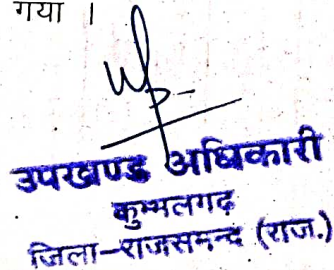 गया ।
उपखण्ड अधिकारी
कुम्भलगढ़
जिला-राजसमन्द (राज.)